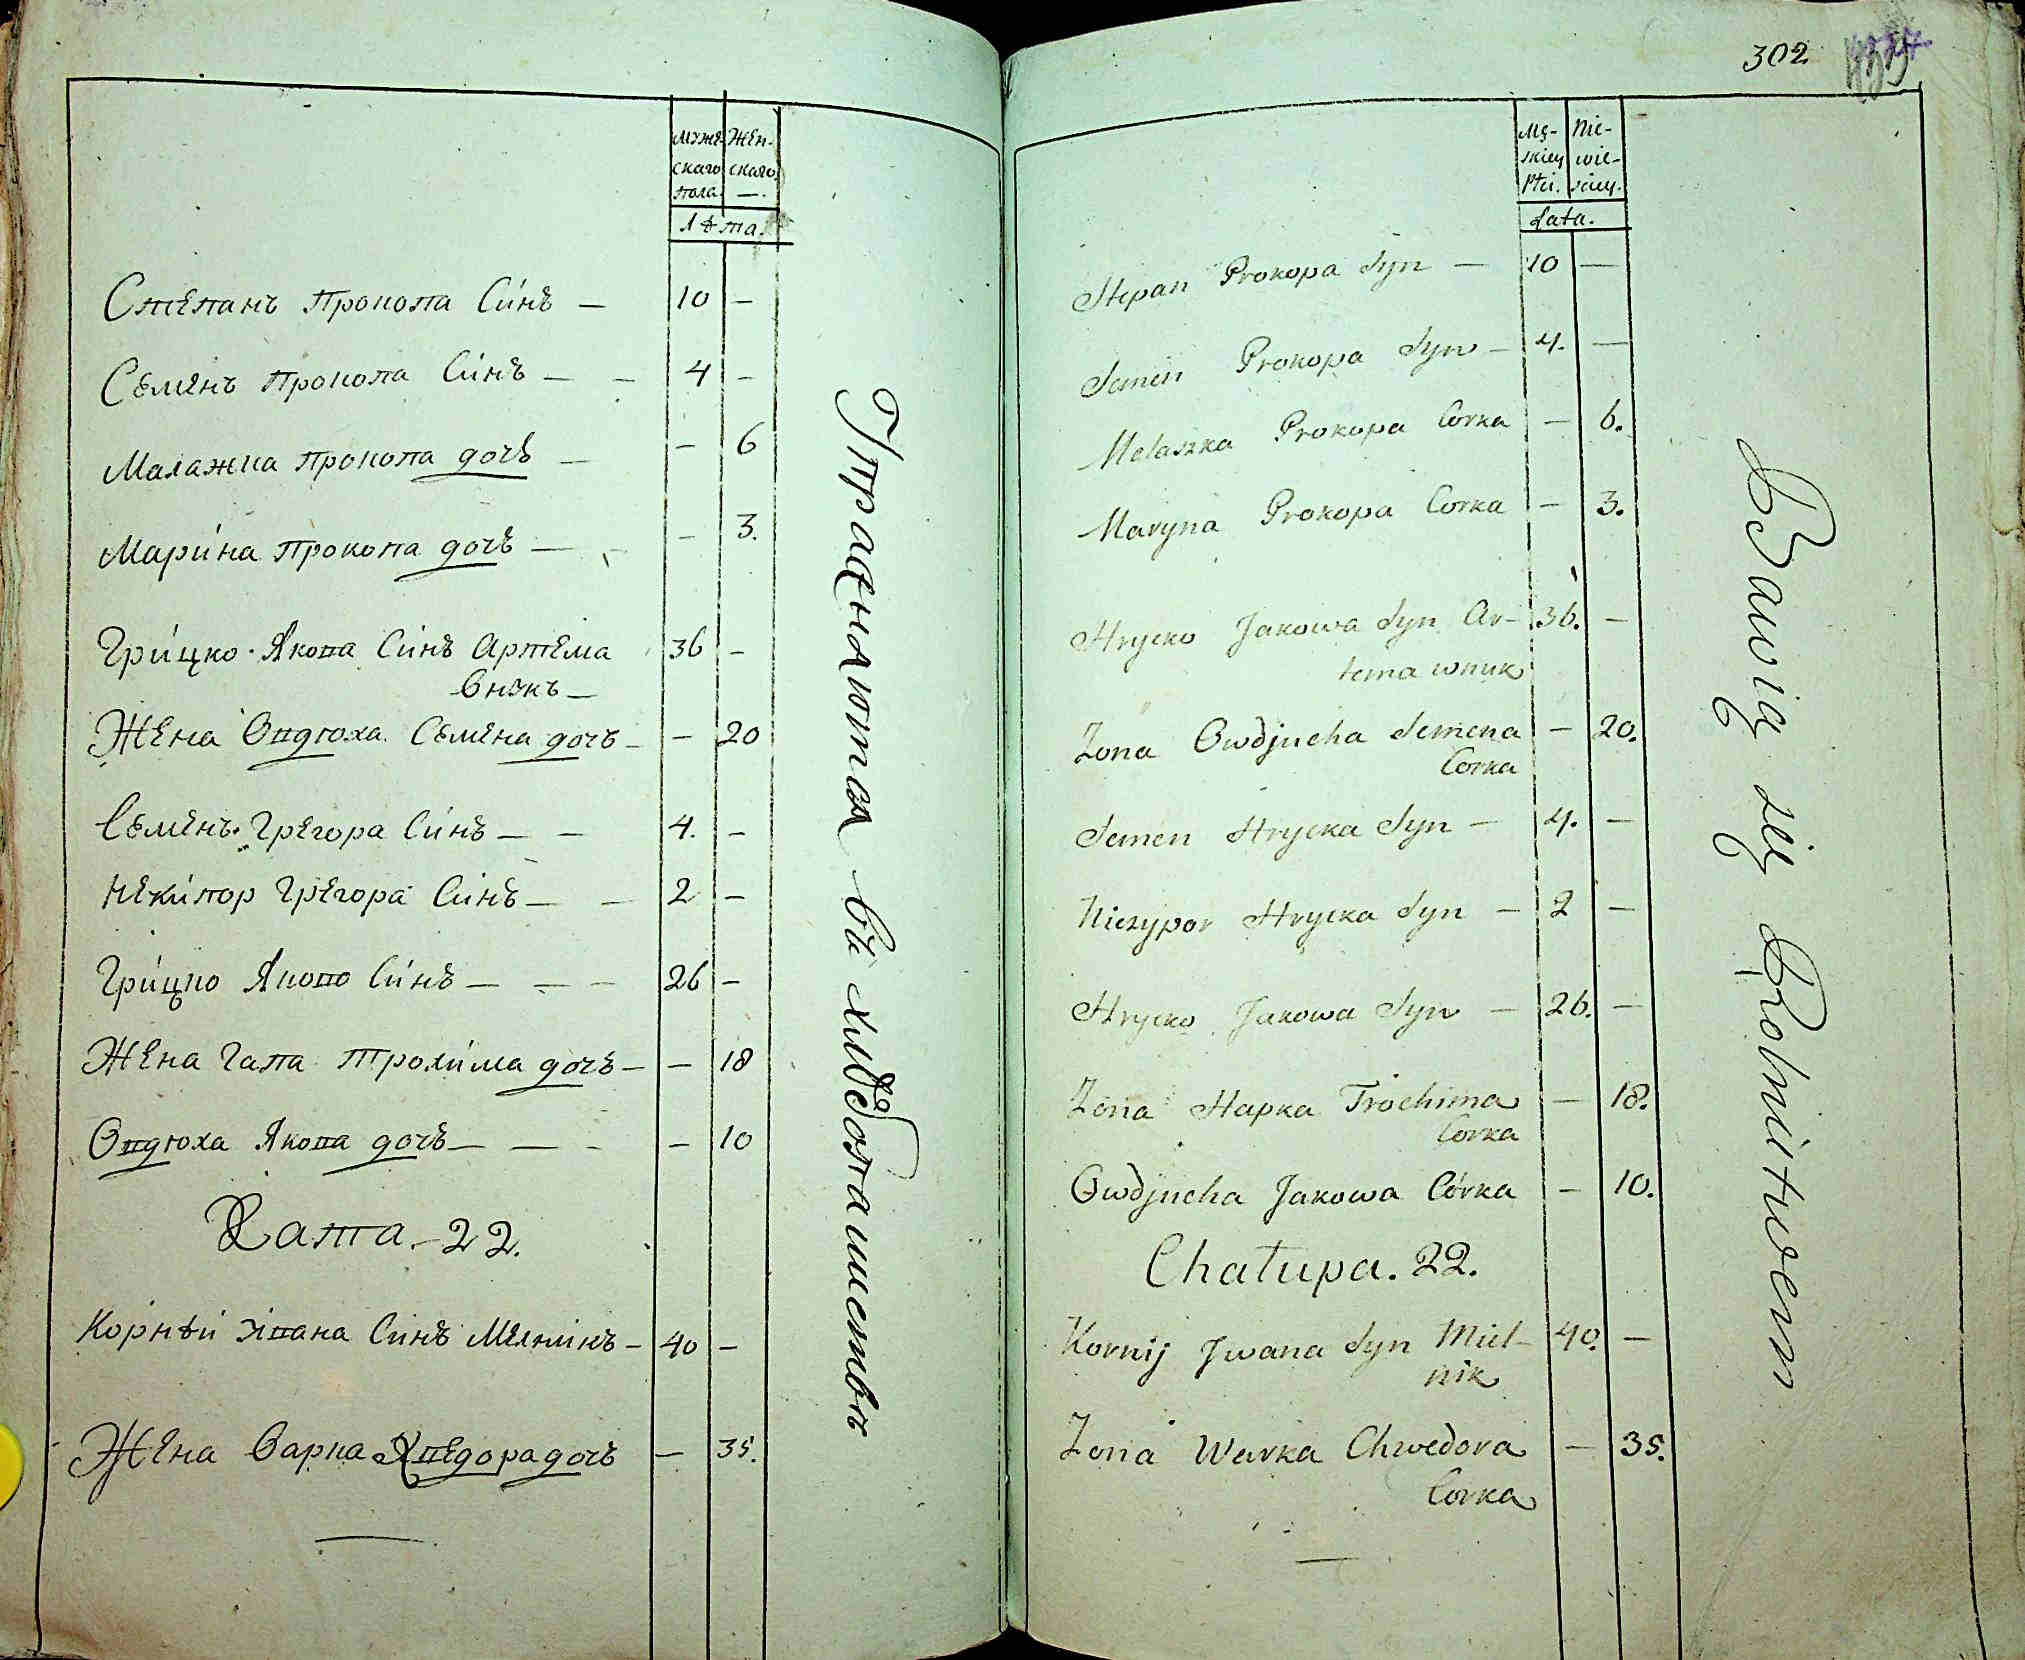 Муже- Жен-
скаго скаго
пола. —.
Лѣта.
Степанъ Прокопа Синъ — 10 —
Семенъ Прокопа Синъ — — 4 —
Малажка Прокопа дочъ — — 6
Марина Прокопа дочъ — — 3.
Грицко Якова Синъ Артема 36 —
Внукъ —
Жена Овдюха Семена дочъ — — 20
Семенъ Грегора Синъ — — 4. —
Некипор Грегора Синъ — — 2 —
Грицко Яково Синъ — — — 26 —
Жена Гапа Трохима дочъ — — 18
Овдюха Якова дочъ — — — — 10
Хата. — 22.
Корнѣй Ивана Синъ Мелникъ — 40 —
Жена Варка Хведора дочъ — 35.
Упражняются въ хлѣбопашествѣ
302
Mę- Nie-
skiey wie-
Płci. sciey.
Lata.
Stepan Prokopa Syn — 10 —
Semen Prokopa Syn — 4. —
Melaszka Prokopa Corka — 6.
Maryna Prokopa Corka — 3.
Hrycko Jakowa Syn Ar- 36. —
tema wnuk
Zona Owdjucha Semena — 20.
Corka
Semen Hrycka Syn — 4. —
Niczypor Hrycka Syn — 2 —
Hrycko Jakowa Syn — 26. —
Zona Hapka Trochima — 18.
Corka
Owdjucha Jakowa Córka — 10.
Chałupa. 22.
Kornij Jwana Syn Miel- 40. —
nik
Zona Warka Chwedora — 35.
Corka
Bawią się Rolnictwem